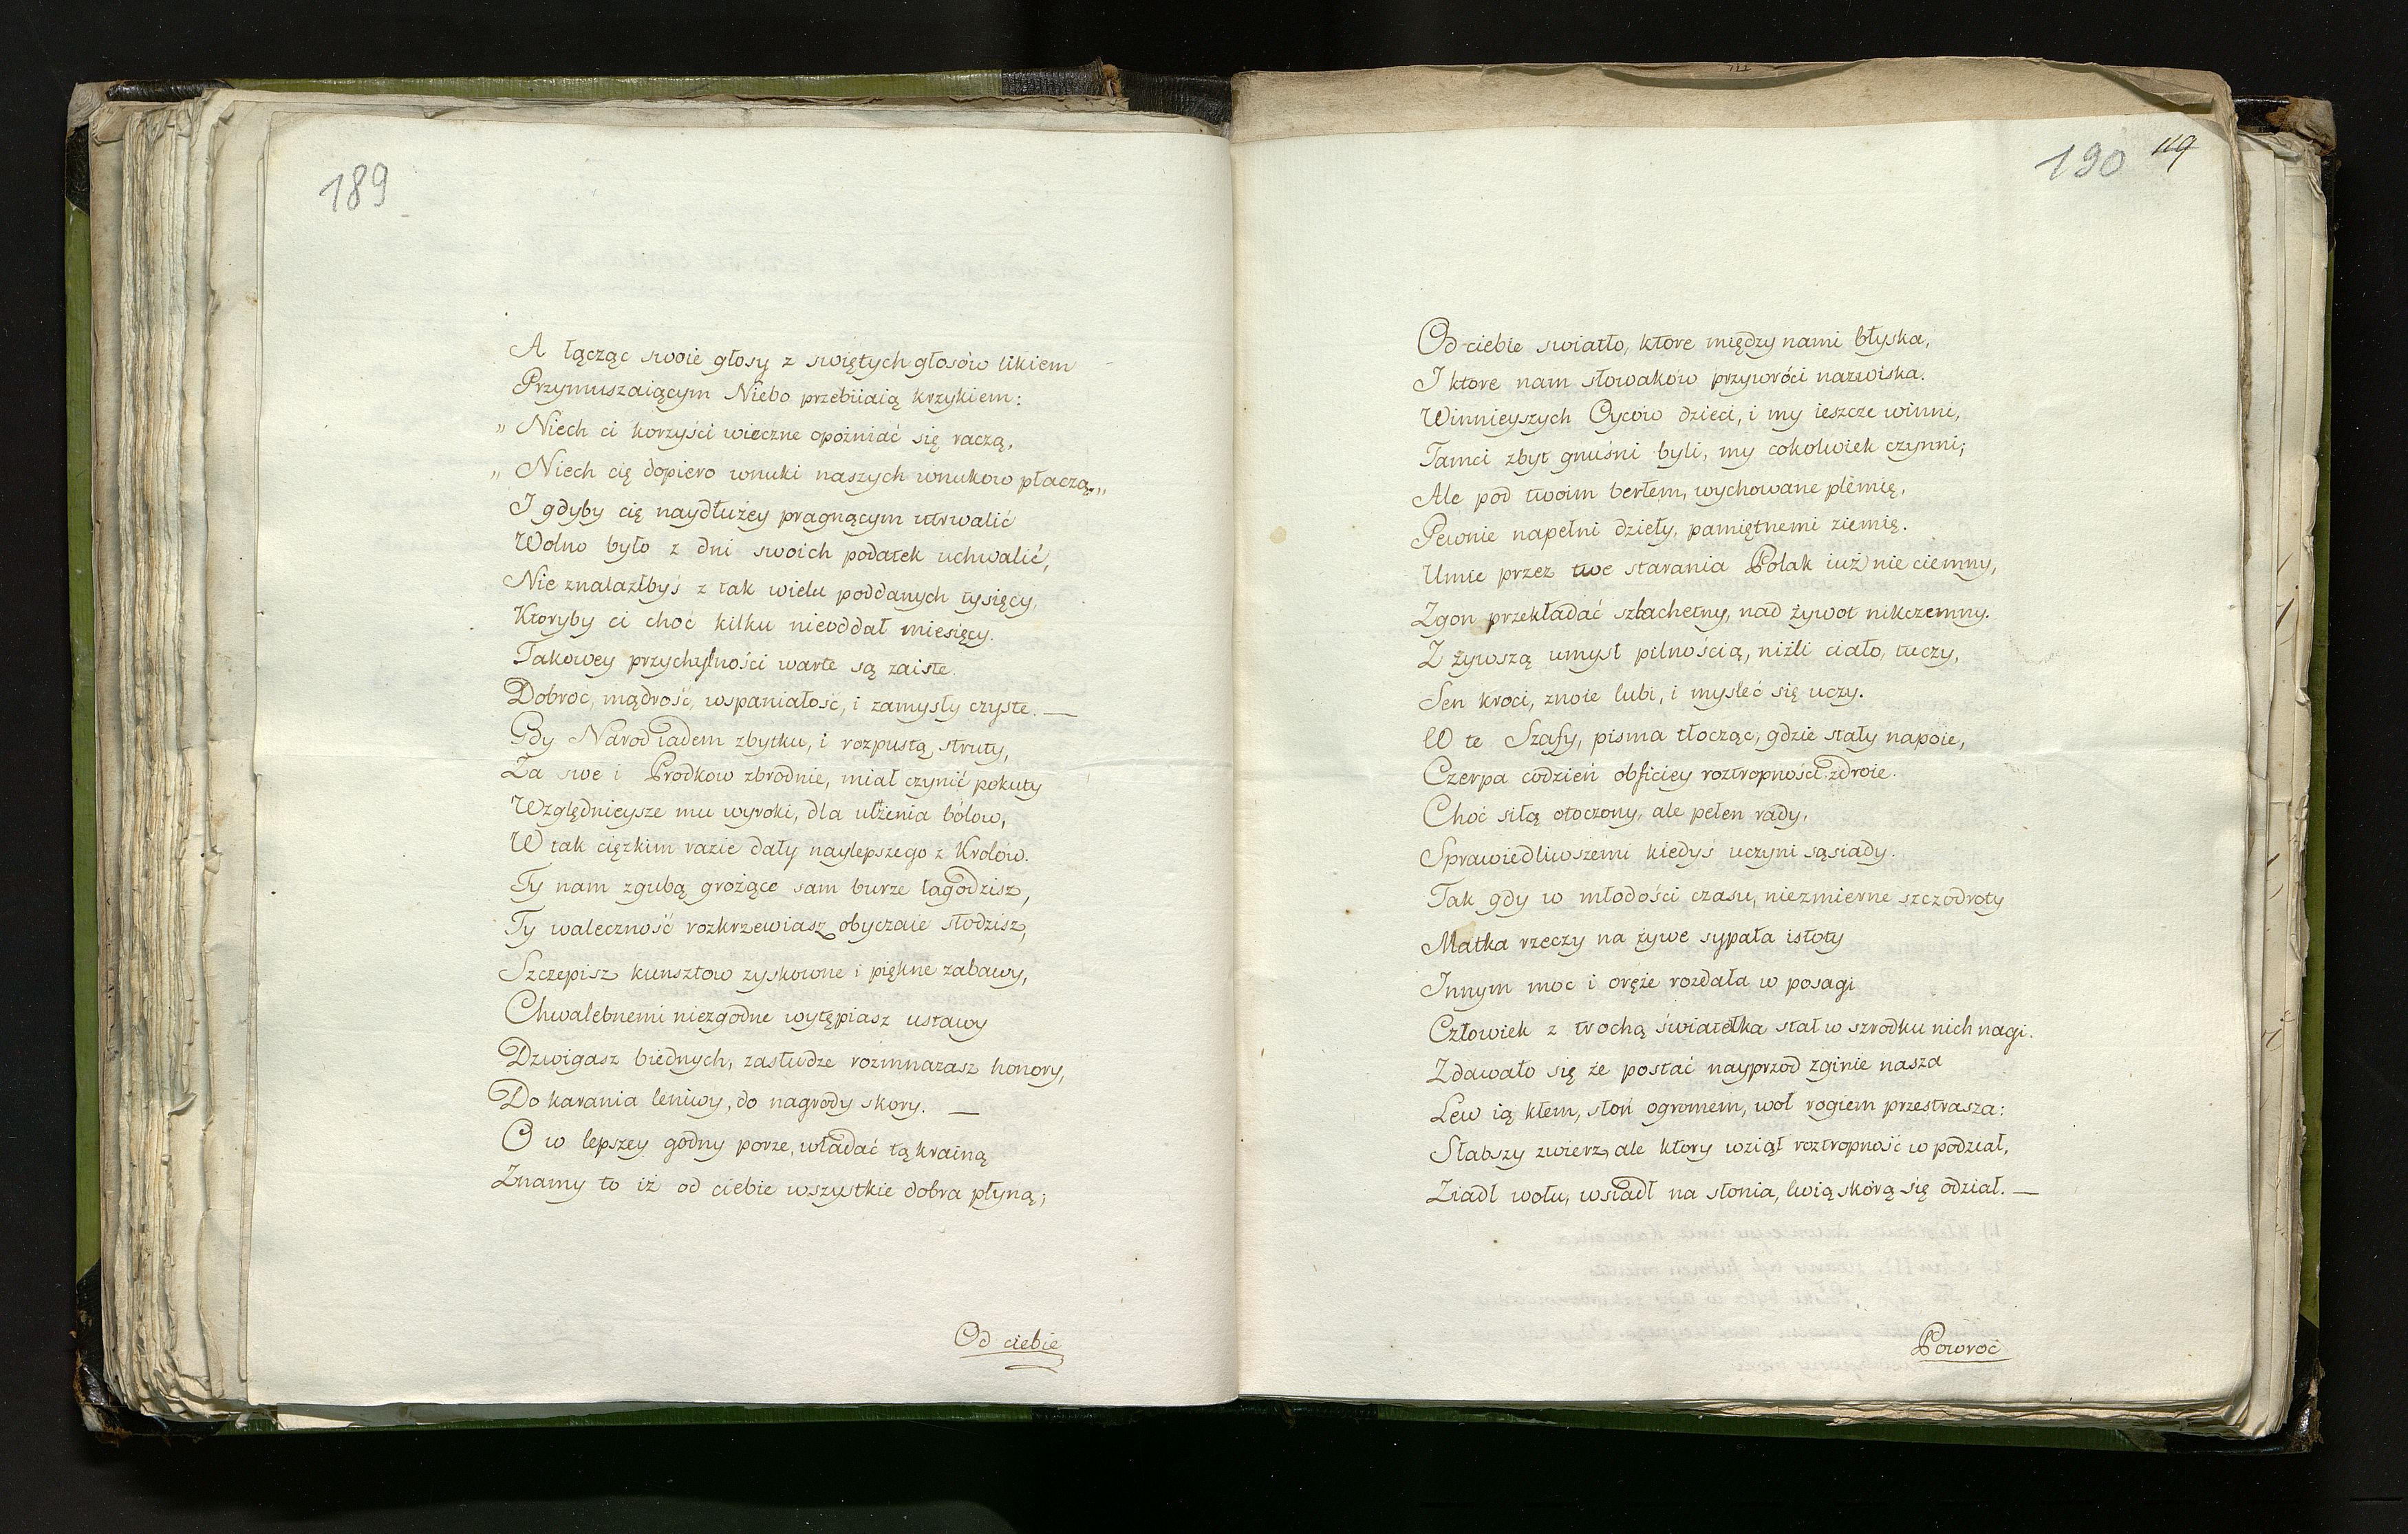 189
A łącząc swoie głosy z swiętych głosów likiem
Przymuszaiącym Niebo przebiiaią krzykiem:
„ Niech ci korzyści wieczne opoźniać się raczą,
„ Niech cię dopiero wnuki naszych wnukow płaczą.„
I gdyby cię naydłużey pragnącym utrwalić
Wolno było z dni swoich podatek uchwalić,
Nie znalazłbyś z tak wielu poddanych tysięcy,
Ktoryby ci choć kilku nieoddał miesięcy.
Takowey przychylności warte są zaiste.
Dobroc, mądrość, wspaniałość, i zamysły czyste. —
Gdy Narod iadem zbytku, i rozpustą struty,
Za swe i Prodkow zbrodnie, miał czynić pokuty
Względnieysze mu wyroki, dla ulżenia bólow,
W tak cięzkim razie dały naylepszego z Krolow.
Ty nam zgubą grożące sam burze łagodzisz,
Ty waleczność rozkrzewiasz obyczaie słodzisz,
Szczepisz kunsztow zyskowne i piękne zabawy,
Chwalebnemi niezgodne wytępiasz ustawy
Dzwigasz biednych, zasłudze rozmnazasz honory,
Do karania leniwy, do nagrody skory. —
O w lepszey godny porze, władać tą krainą
Znamy to iż od ciebie wszystkie dobra płyną;
Od ciebie
190 119
Od ciebie swiatło, ktore między nami błyska,
I ktore nam słowaków przywróci nazwiska.
Winnieyszych Oyców dzieci, i my ieszcze winni,
Tamci zbyt gnuśni byli, my cokolwiek czynni;
Ale pod twoim berłem, wychowane plemię,
Pewnie napełni dzieły, pamiętnemi ziemię.
Umie przez twe starania Polak iuż nie ciemny,
Zgon przekładać szlachetny, nad żywot nikczemny.
Z żywszą umysł pilnością, niźli ciało, tuczy,
Sen kroci, znoie lubi, i mysleć się uczy.
W te Szafy, pisma tłocząc, gdzie stały napoie,
Czerpa codzień obficiey roztropności zdroie.
Choć siłą otoczony, ale pełen rady,
Sprawiedliwszemi kiedyś uczyni sąsiady.
Tak gdy w młodości czasu, niezmierne szczodroty
Matka rzeczy na żywe sypała istoty
Innym moc i oręże rozdała w posagi
Człowiek z trochą światełka stał w szrodku nich nagi.
Zdawało się że postać nayprzod zginie nasza
Lew ią kłem, słoń ogromem, woł rogiem przestrasza:
Słabszy zwierz, ale ktory wziął roztropność w podział,
Ziadł wołu, wsiadł na słonia, lwią skórą się odział. —
Powroć